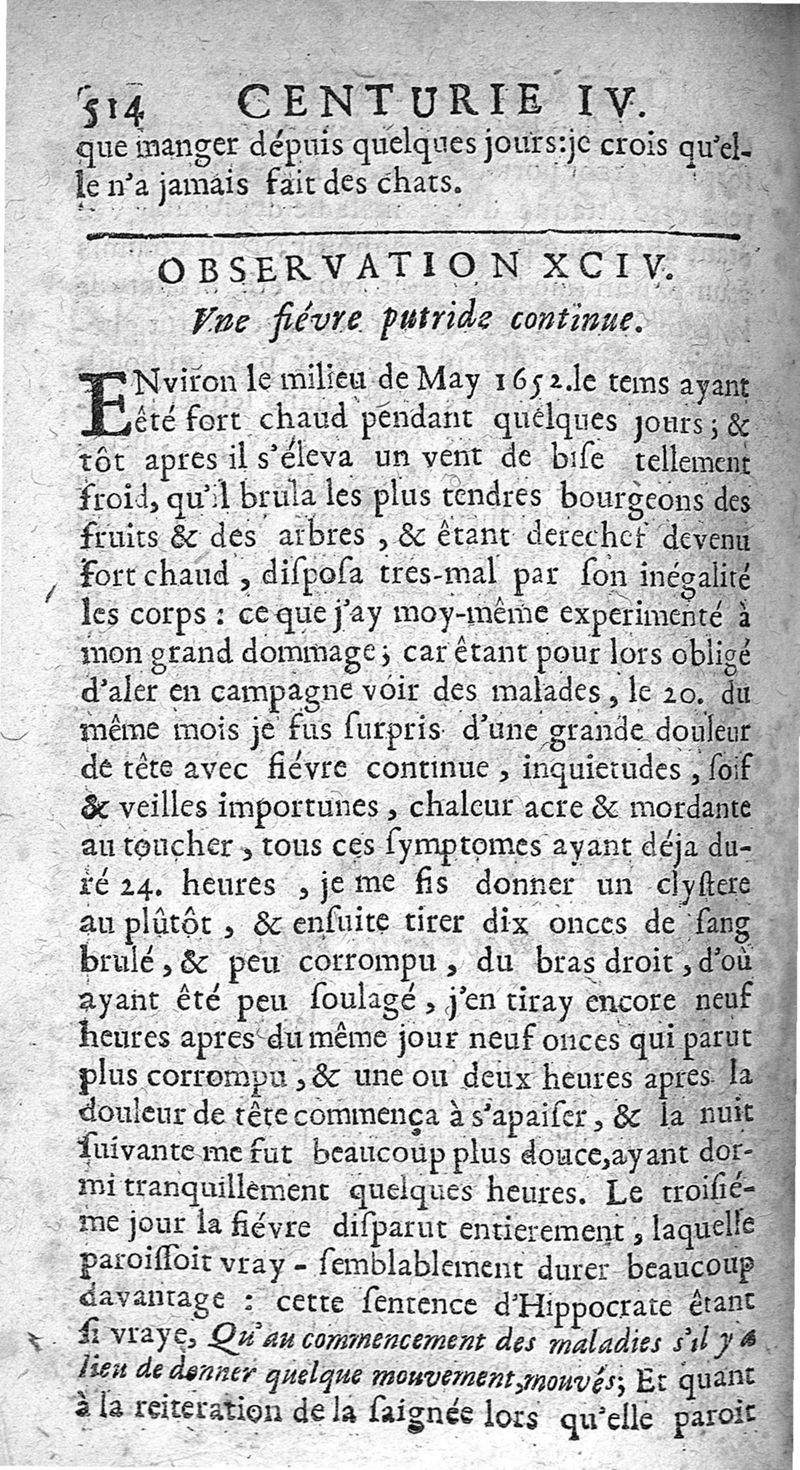 514 CENTURIE IV.
que manger dépuis quelques jours:je crois qu'el-
le n'a jamais fait des chats.
OBSERVATION XCIV.
Vne fiévre putride continue.
ENviron le milieu de May 1652.le tems ayant
été fort chaud pendant quelques jours ; &
tôt apres il s'éleva un vent de biſe tellement
froid, qu'il brula les plus tendres bourgeons des
fruits & des arbres , & étant derechef devenu
fort chaud , diſpoſa tres-mal par ſon inégalité
les corps : ce que j'ay moy-même experimenté à
mon grand dommage ; car étant pour lors obligé
d'aler en campagne voir des malades , le 20. du
même mois je fus ſurpris d'une grande douleur
de tête avec fiévre continue , inquietudes , ſoif
& veilles importunes , chaleur acre & mordante
au toucher , tous ces ſymptomes ayant déja du-
ré 24. heures , je me fis donner un clyſtere
au plûtôt , & enſuite tirer dix onces de ſang
brulé , & peu corrompu , du bras droit , d'où
ayant été peu ſoulagé , j'en tiray encore neuf
heures apres du même jour neuf onces qui parut
plus corrompu , & une ou deux heures apres la
douleur de tête commença à s'apaiſer , & la nuit
ſuivante me fut beaucoup plus douce,ayant dor-
mi tranquillement quelques heures. Le troiſié-
me jour la fiévre diſparut entierement , laquelle
paroiſſoit vray - ſemblablement durer beaucoup
davantage : cette ſentence d'Hippocrate étant
ſi vraye, Qu'au commencement des maladies s'il y a
lieu de donner quelque mouvement,mouvés; Et quant
à la reiteration de la ſaignée lors qu'elle paroit